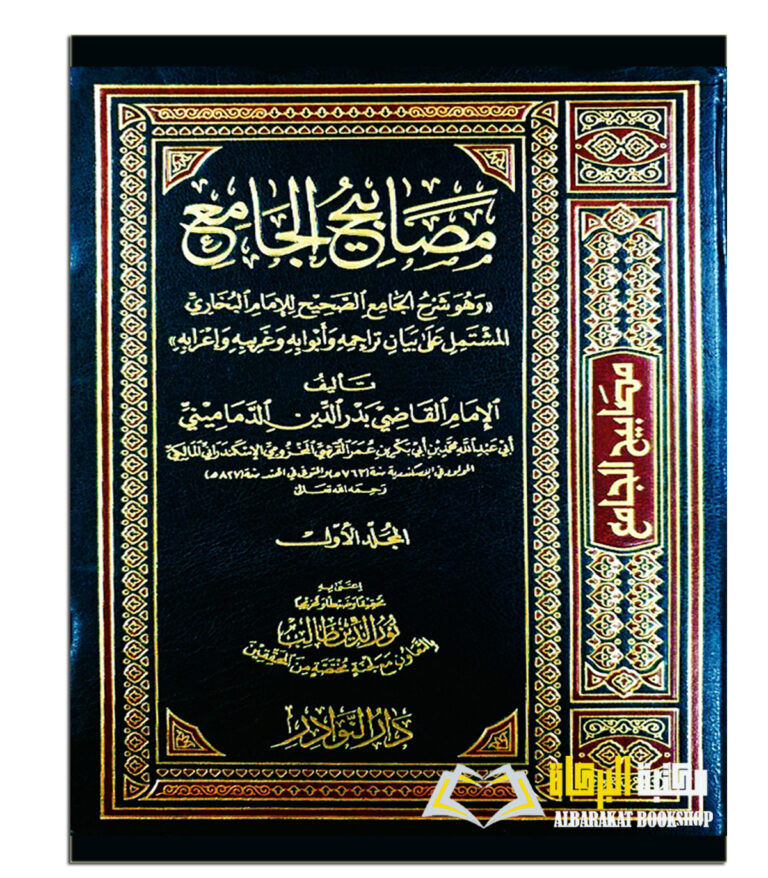 مصابيح الجامع
«وهو شرح الجامع الصحيح للإمام البخاري
المشتمل على بيان تراجمه وأبوابه وغريبه وإعرابه»
تأليف
الإمام القاضي بدر الدين الدماميني
أبي عبد الله محمد بن أبي بكر بن عمر القرشي المخزومي الإسكندراني المالكي
المولود في الإسكندرية سنة (٧٦٣ هـ) والمتوفى في الهند سنة (٨٢٧ هـ)
رحمه الله تعالى
المجلد الأول
اعتنى به
تحقيقا وضبطا وتخريجا
نور الدين طالب
بالتعاون مع لجنة مختصة من المحققين
دار النوادر
مصابيح الجامع
مكتبة البركاة
ALBARAKAT BOOKSHOP